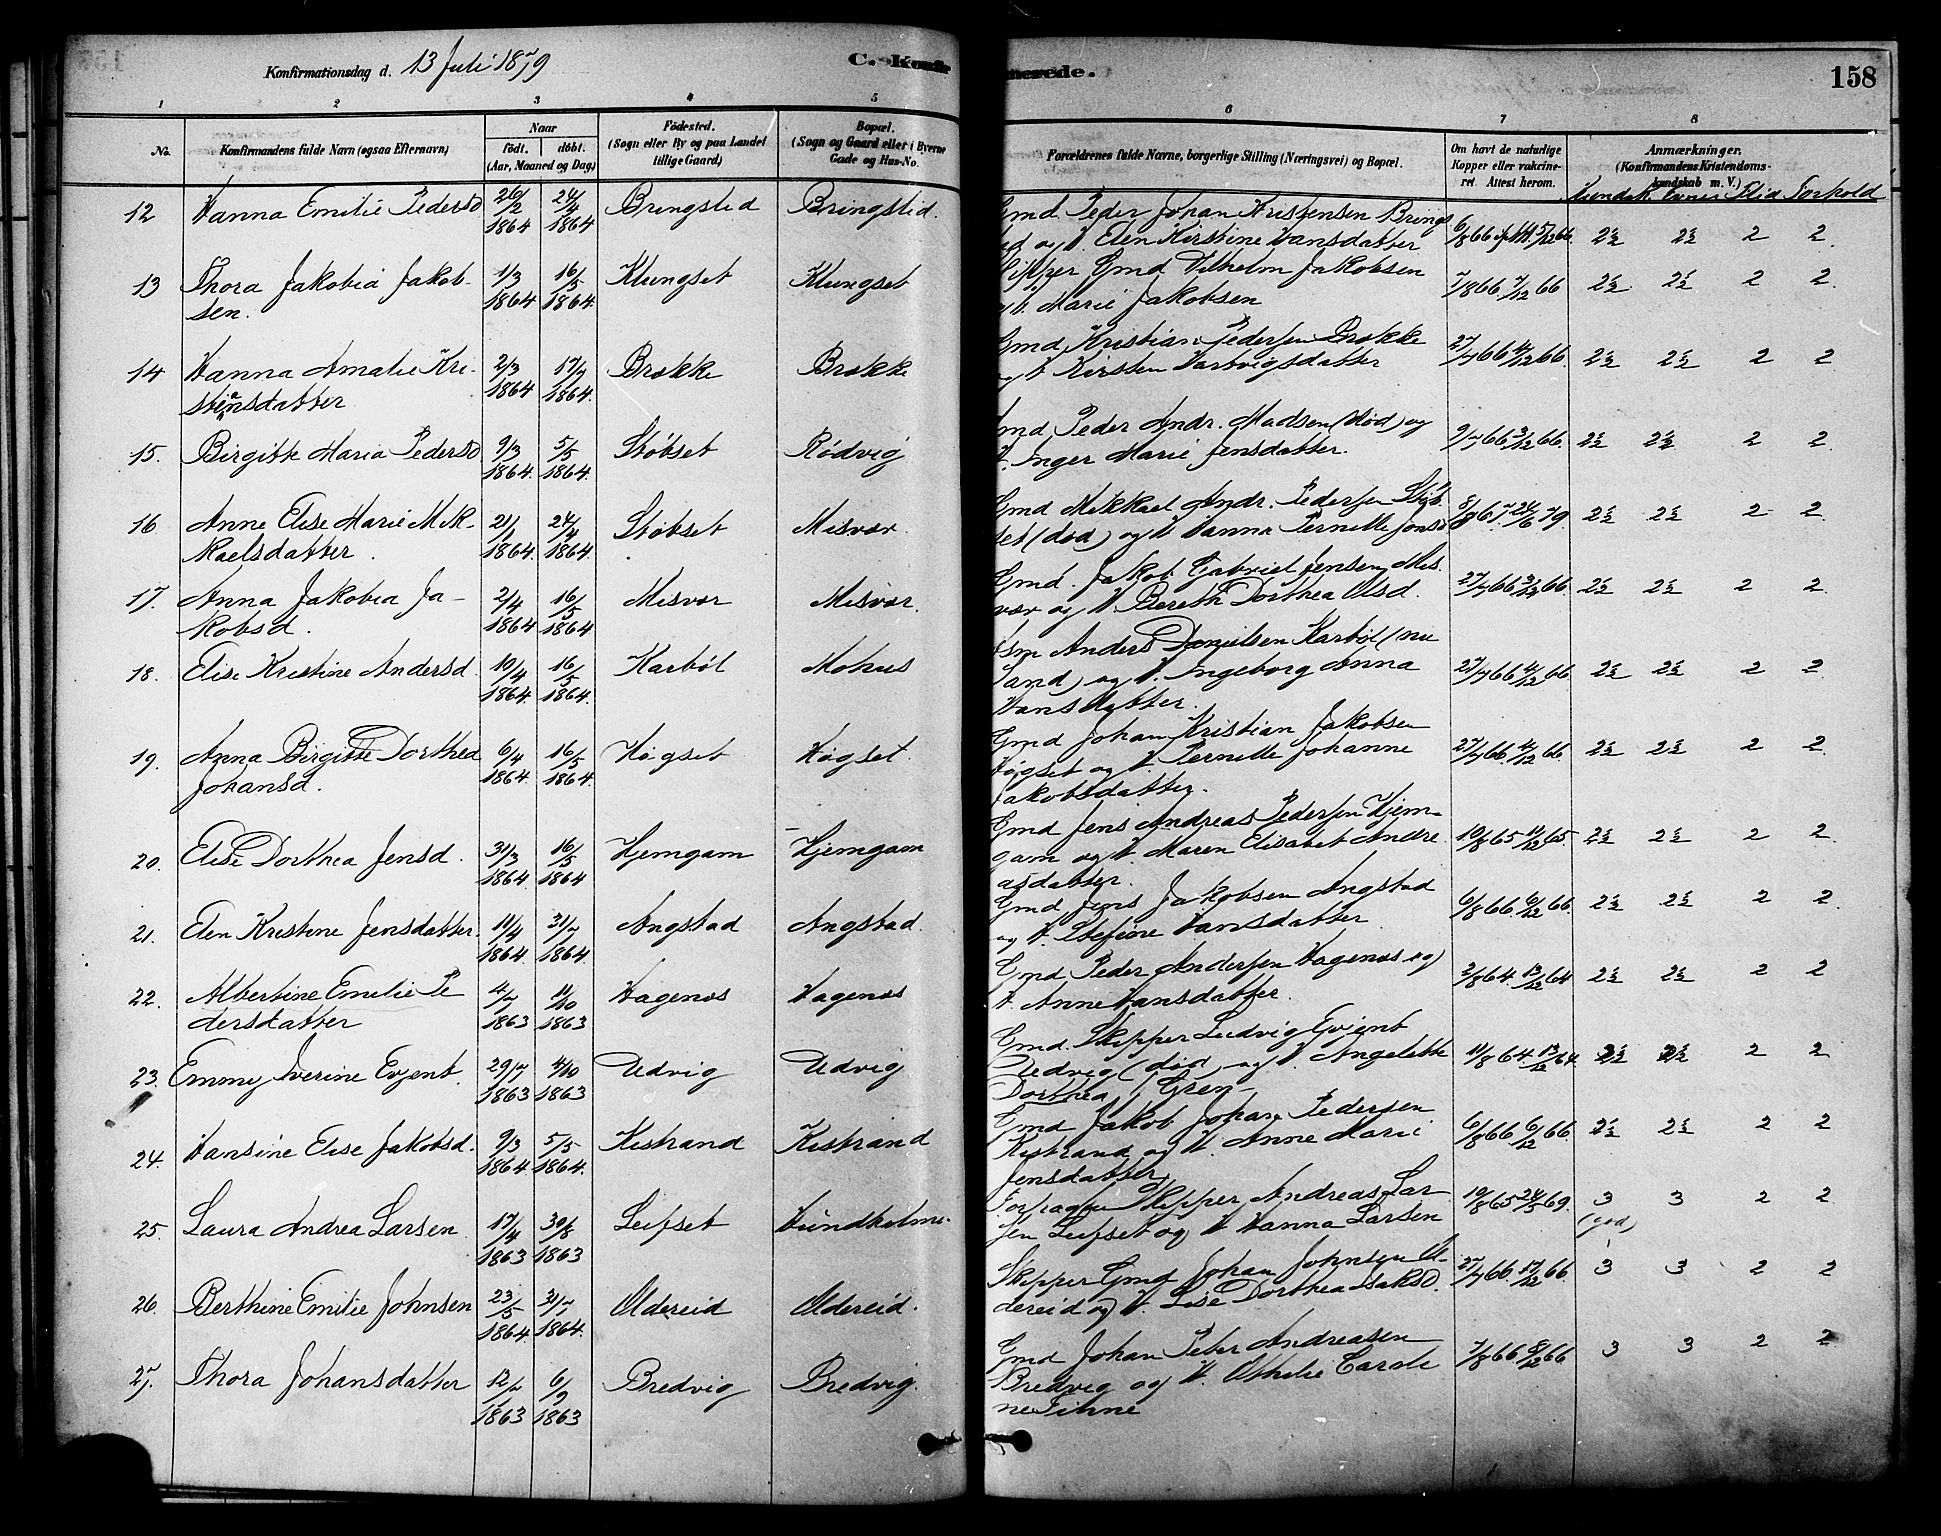 Konfirmationsdag d. 13 Juli 1879
C. Konfir
merede.
158
1 2 3 4 5 6 7 8
No.
Konfirmandens fulde Navn (ogsaa Efternavn)
Naar
födt. döbt.
(Aar, Maaned og Dag)
Födested.
(Sogn eller By og paa Landet
tillige Gaard)
Bopæl.
(Sogn og Gaard eller i Byerne
Gade og Hus-No.
Forældrenes fulde Navne, borgerlige Stilling (Næringsvei) og Bopæl.
Om havt de naturlige
Kopper eller vakcine-
ret Attest herom.
Anmærkninger.
(Konfirmandens Kristendoms-
kundskab m. V.)
Kundsk. Evner Flid Forhold
12 Hanna Emilie Pedersd 26/2 1864 24/4 1864 Bringslid Bringslid.
Gmd. Peder Johan Kristensen Brings
lid og H. Elen Kirstine Hansdatter 6/8 66 5/12 66. 2½ 2½ 2 2
13 Thora Jakobia Jakob-
sen. 1/3 1864 16/5 1864. Klungset Klungset
Skipper Gmd Vilhelm Jakobsen
og H. Marie Jakobsen 7/8 66 7/12 66 2½ 2½ 2 2
14 Hanna Amalie Kri-
stiansdatter 2/3 1864 17/7 1864. Brække Brække
Gmd Kristian Pedersen Brække
og H. Kirsten Hartvigsdatter 27/7 66 4/12 66. 2½ 2½ 2 2
15. Birgitte Maria Pedersd 9/3 1864. 5/5 1864. Støbset Rødvig
Gmd Peder Andr. Madsen (død) og
H. Inger Marie Jensdatter. 9/7 66 3/12 66. 2½ 2½ 2 2
16 Anne Elise Marie Mik-
kaelsdatter. 21/1 1864. 24/4 1864. Støbset Misvær
Gmd Mikkael Andr. Pedersen Støb
set (død) og H Hanna Pernille Jonsd 8/8 67 24/6 79. 2½ 2½ 2 2
17. Anna Jakobia Ja-
kobsd. 2/4 1864 16/5 1864 Misvær Misvær.
Gmd. Jakob Gabriel Jensen Mis
vær og H. Bereth Dorthea Olsd. 27/7 66 3/12 66. 2½ 2½ 2 2
18. Elise Kristine Andersd. 10/4 1864. 16/5 1864. Karbøl Mohus
Hsm Anders Danielsen Karbøl (nu
Sand) og H. Ingeborg Anna
Hansdatter. 27/7 66 4/12 66. 2½ 2½ 2 2
19. Anna Birgitte Dorthea
Johansd. 6/4 1864. 16/5 1864. Høgset Høgset.
Gmd Johan Kristian Jakobsen
Høgset og H. Pernille Johanne
Jakobsdatter. 27/7 66. 4/12 66. 2½ 2½ 2 2
20. Elise Dorthea Jensd. 31/3 1864. 16/5 1864 Hjemgam Hjemgam
Gmd Jens Andreas Pedersen Hjem-
gam og H. Maren Elisabet Andre
asdatter. 10/8 65 11/12 65. 2½ 2½ 2 2
21. Elen Kristine Jensdatter. 11/4 1864. 31/7 1864. Angstad Angstad.
Gmd Jens Jakobsen Angstad
og H. Stefine Hansdatter 6/8 66. 6/12 66. 2½ 2½ 2 2
22. Albertine Emilie Pe
dersdatter 4/7 1863 11/10 1863 Hagenæs Hagenæs
Gmd Peder Andersen Hagenæs og
H. Anne Hansdatter. 2/8 64. 13/12 64 2½ 2½ 2 2
23. Emmy Iverine Evjent. 29/7 1863 4/10 1863 Udvig Udvig
Gmd. Skipper Ludvig Evjent
Udvig (død) og H. Angelette
Dorthea Gren- 11/8 64 13/12 64. 2½ 2½ 2 2
24. Hansine Elise Jakobsd. 9/3 1864 5/5 1864. Kistrand Kistrand
Gmd Jakob Johan Pedersen
Kistrand og H. Anne Marie
Jensdatter 6/8 66 6/12 66. 2½ 2½ 2 2
25. Laura Andrea Larsen. 17/4 1863 30/8 1863 Leifset Hundholme.
Forpagter Skipper Andreas Lar
sen Leifset og H Hanna Larsen 10/8 65 24/5 69. 3 3 2 2
(god)
26. Berthine Emilie Johnsen 23/5 1864 31/7 1864. Oldereid Oldereid.
Skipper Gmd Johan Johnsen Ol-
dereid og H. Lise Dorthea Isaksd. 27/7 66. 17/12 66. 3 3 2 2
27. Thora Johansdatter 12/7 1863 6/9 1863 Bredvig Bredvig.
Gmd Johan Peter Andreasen
Bredvig og H. Othelie Caroli
ne Finne 7/8 66 8/12 66 3 3 2 2